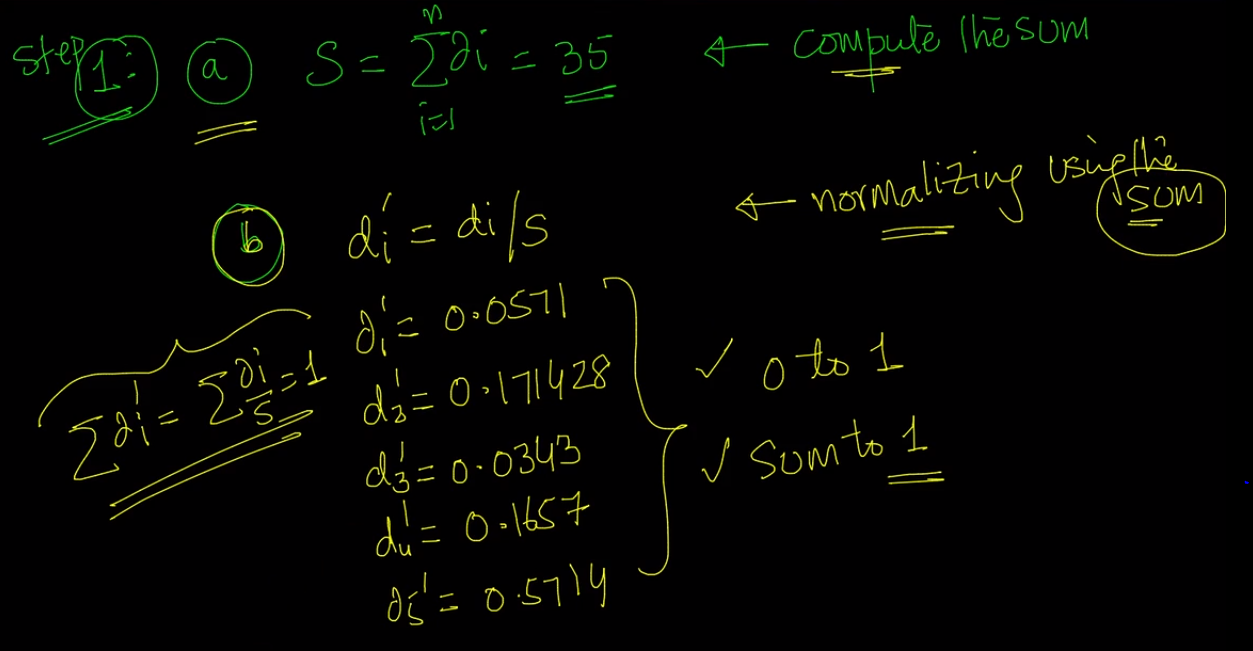 Step 1: a S = n∑i=1 di = 35 ← compute the sum
b di' = di/s ← normalizing using the sum
d1' = 0.0571
d2' = 0.171428
d3' = 0.0343
d4' = 0.1657
d5' = 0.5714
∑di' = ∑ di/S = 1
✓ 0 to 1
✓ sum to 1